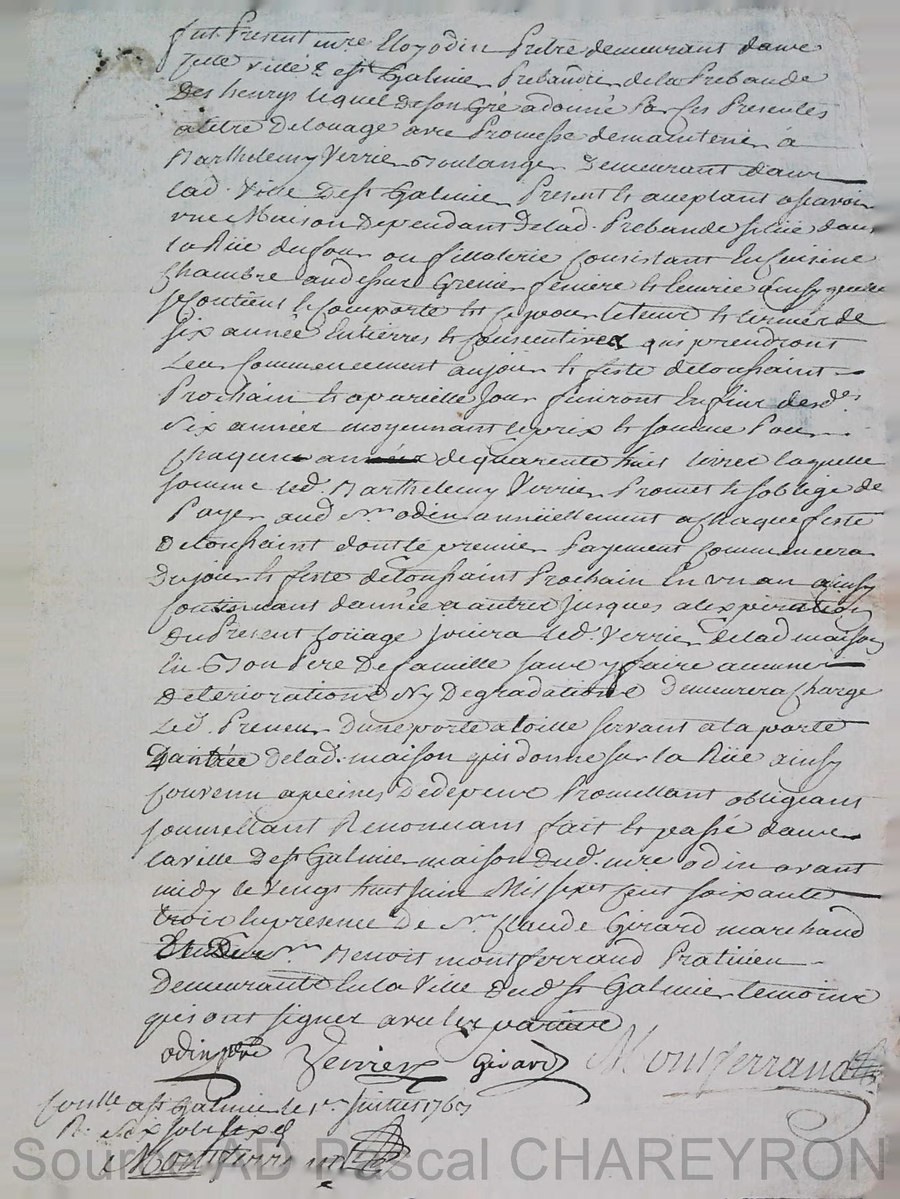 fut Present mre Eloy odin Prêtre demeurant dans
cette ville de st Galmier Prebandier de la Prebande
Des henrys lequel de son Gré a donné Par ses Presentes
a titre De louage avec Promesse de maintenir à
Barthelemy Verrier Boulanger Demeurant dans
lad. Ville De st Galmier Present et acceptant asçavoir
une Maison Dependant De lad. Prebande située dans
la Rüe du four ou fillaterie Consistant En Cuisine
Chambre au dessus Grenier feniere et Ecurie ainsy quelle
se Contient et Comporte et ce pour le temps et terme de
six année Entierres et Consecutives qui prendront
Leur Commencement au jour et feste de toussaint
Prochain et a pareille Jour finiront En fin desd.
Six années moyennant le prix et somme Pour
chaquune année de quarente huit livres laquelle
somme led. Barthelemy Verrier Promet et s'oblige de
Payer aud. Sr. odin annüellement a Chaque feste
De toussaint dont le premier Payement Commencera
Du jour et feste de Toussaint Prochain En un an ainsy
Continuant d'année a autres Jusques a lexpiration
Du Present loüage Joüira led. Verrier de lad maison
En Bon Pere De famille sans y faire aucunes
Deteriorations Ny Degradations demeurera Chargé
Led. Preneur D'une porte a servant a la porte
D'antrée de lad. maison qui donne sur la Rüe ainsy
Convenu a peines De depens Promettant obligeant
soumettant Renonceans fait et passé dans
la ville De st Galmier maison dud. mre odin avant
midy le vengt huit Juin Mil sept cent soixante
trois En presence De Sr. Claude Girard marchand
Et de Sr. Benoit montferrand Praticien
Demeurants En la Ville dud. st Galmier temoins
qui ont signer avec les parties
odin ptre Verrier Girard Montferrand
Conllé a st Galmier le 1er Juillet 1763
R. six sols six d
Montferrand
Source AD Pascal CHAREYRON